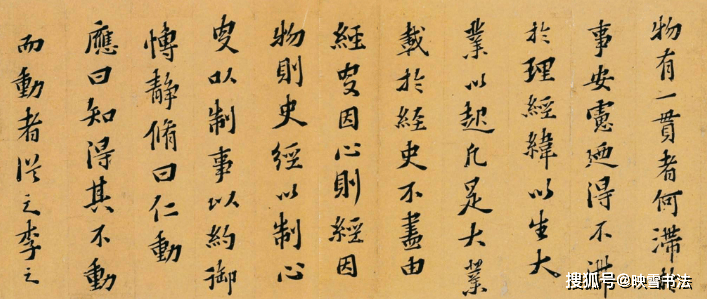 物有一貫者何滯於
事安慮廼得不
於理經緯以生大
業以起凡是大業
載於経史不盡由
經叓因心則經因
物則史經以制心
叓以制事以約御
愽靜脩曰仁動
應曰知得其不動
而動者從之李之
搜狐号@映雪书法